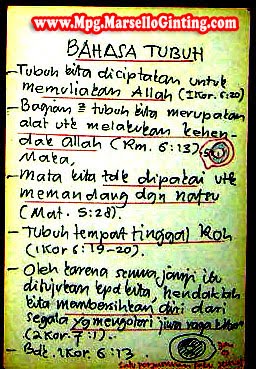 www.Mpg.MarselloGinting.com
BAHASA TUBUH
- Tubuh kita diciptakan untuk
memuliakan Allah (1Kor. 6:20)
- Bagian ² tubuh kita merupakan
alat utk melakukan kehen-
dak Allah (Rm. 6:13)
Maka,
- Mata kita tdk dipakai utk
memandang dan nafsu
(Mat. 5:28).
- Tubuh tempat tinggal Roh
(1Kor 6:19-20).
- Oleh karena semua janji itu
ditujukan kpd kita, hendaklah
kita membersihkan diri dari
segala yg mengotori jiwa raga
(2Kor. 7:1).
- Bdk. 1Kor. 6:13